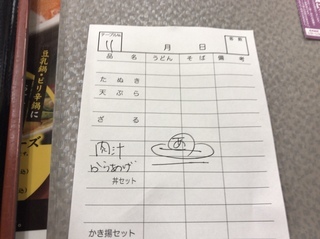 テーブルNo. 名 前
11
月 日
品 名 うどん そば 備 考
たぬき
天ぷら
ざる
肉汁 あ
からあげ
丼セット
かき揚セット
豆乳鍋・ピリ辛鍋に